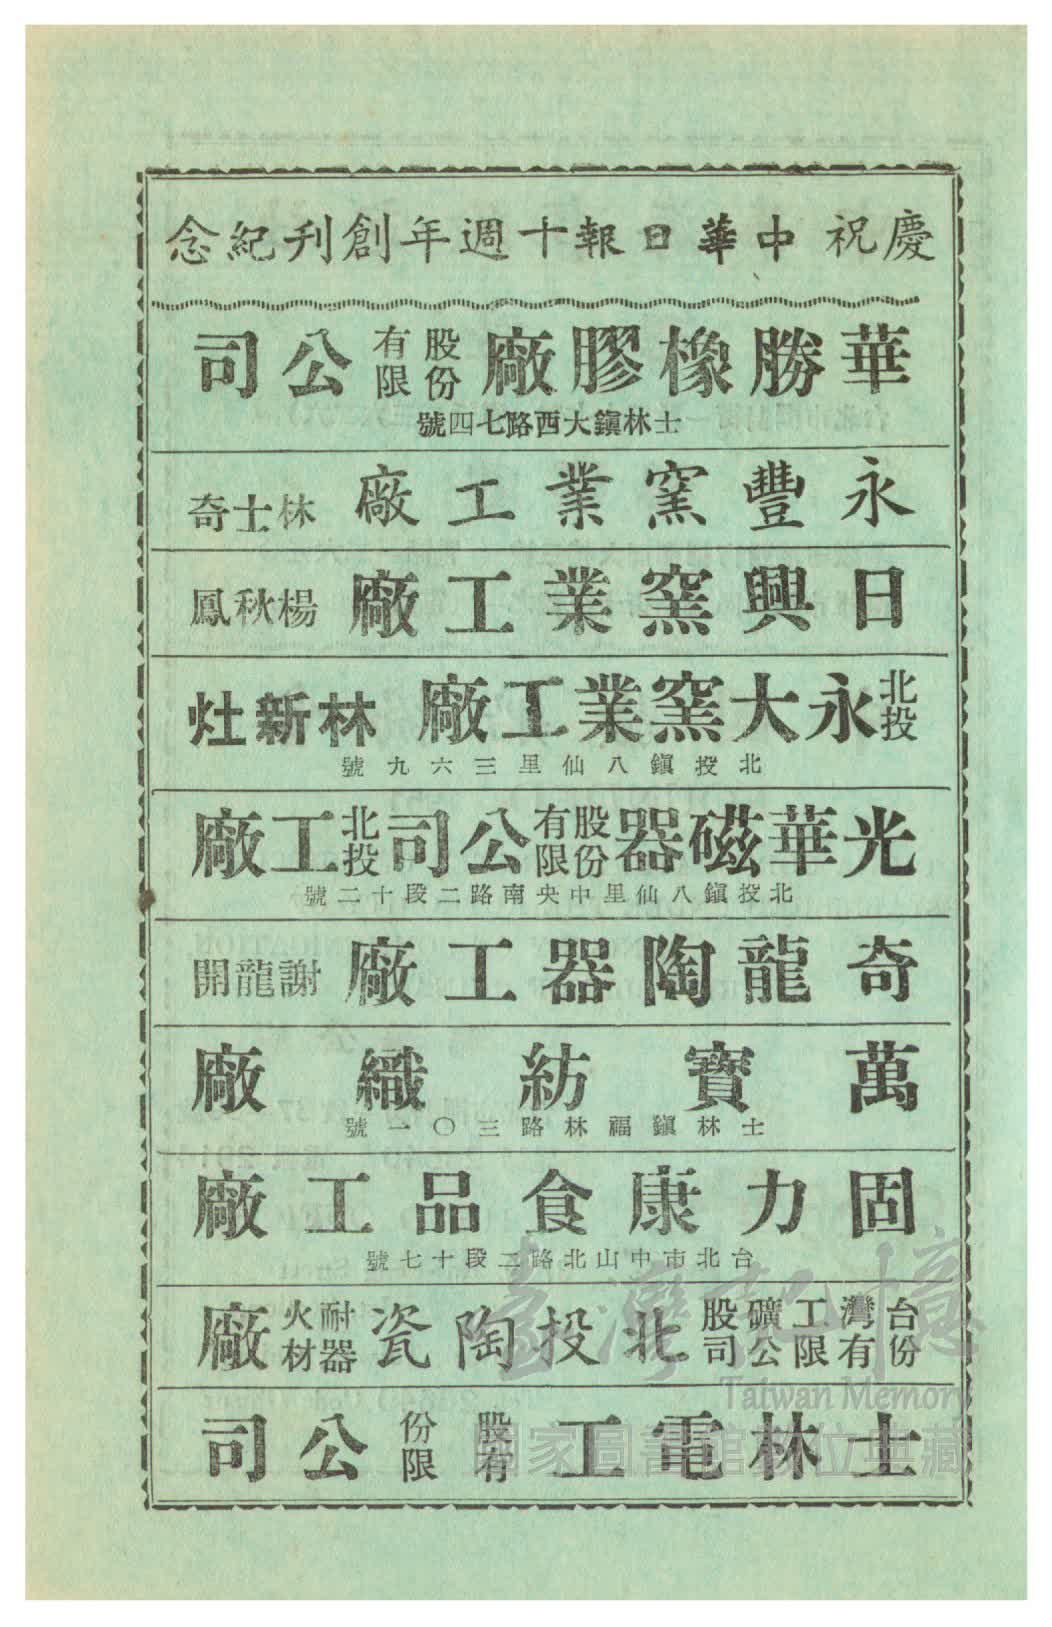 慶祝中華日報十週年創刊紀念
華勝橡膠廠股份有限公司
士林鎮大西路七四號
永豐窯業工廠 林士奇
日興窯業工廠 楊秋鳳
北投永大窯業工廠 林新灶
北投鎮八仙里三六九號
光華磁器股份有限公司北投工廠
北投鎮八仙里中央南路二段十二號
奇龍陶器工廠 謝龍開
萬寶紡織廠
士林鎮福林路三〇一號
固力康食品工廠
台北市中山北路二段十七號
台灣工礦股份有限公司北投陶瓷耐火器材廠
士林電工股份有限公司
臺灣記憶
Taiwan Memory
國家圖書館數位典藏